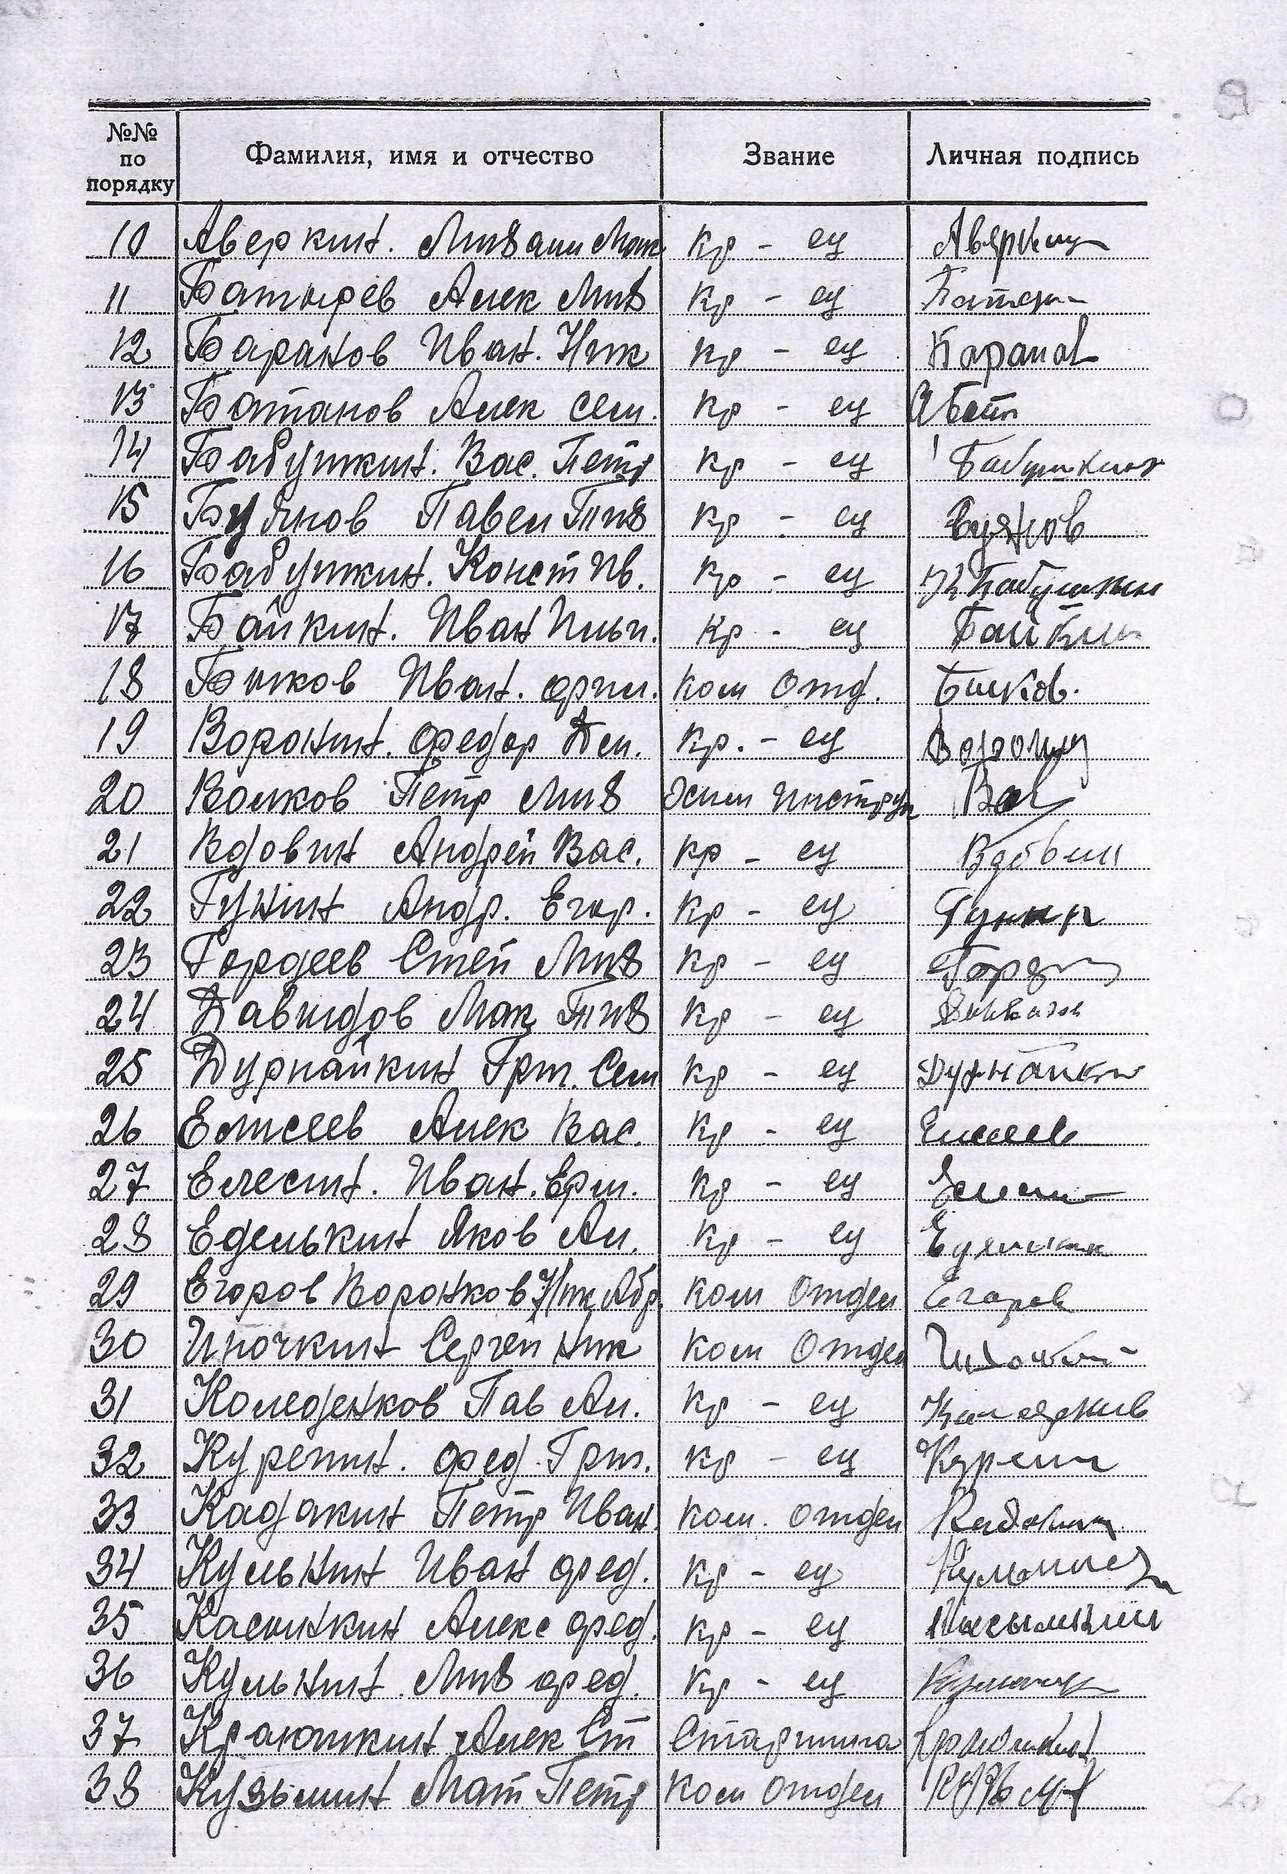 №№ по порядку Фамилия, имя и отчество Звание Личная подпись
10 Аверкин. Михаил Мак Кр - ец Аверкин
11 Батырев Алек Мих Кр - ец
12 Баранов Иван. Ник Кр - ец Баранов
13 Батанов Алек Сем. Кр - ец
14 Бабушкин. Вас. Петр Кр - ец Бабушкин
15 Буянов Павел Тих Кр - ец Буянов
16 Бабушкин. Конст Ив. Кр - ец К Бабушкин
17 Байкин. Иван Ильи. Кр - ец Байкин
18 Быков Иван. Фрил. Ком Отд. Быков.
19 Воронин. Федор Дем. Кр. - ец Воронин
20 Волков Петр Мих Хим Инструк
21 Вдовин Андрей Вас. Кр - ец Вдовин
22 Гунин Андр. Егор. Кр - ец Гунин
23 Гордеев Степ Мих Кр - ец
24 Давидов Мак Тих Кр - ец
25 Дурнайкин Григ. Сем Кр - ец Дурнайкин
26 Елисеев Алек Вас. Кр - ец Елисеев
27 Елесин. Иван. Ерм. Кр - ец
28 Еделькин Яков Ал. Кр - ец
29 Егоров Воронков Ник Абр. Ком Отдел Егоров
30 Иночкин Сергей Ник Ком Отдел
31 Коледенков Пав Ал. Кр - ец
32 Курепин. Фед. Григ. Кр - ец
33 Кадакин Петр Иван. Ком. Отдел Кадакин
34 Кульнин Иван Фед. Кр - ец
35 Касынкин Алекс Фед. Кр - ец
36 Кульнин. Мих Фед. Кр - ец
37 Краюшкин Алек Ст Старшина Краюшкин
38 Кузьмин Мат Петр Ком Отдел